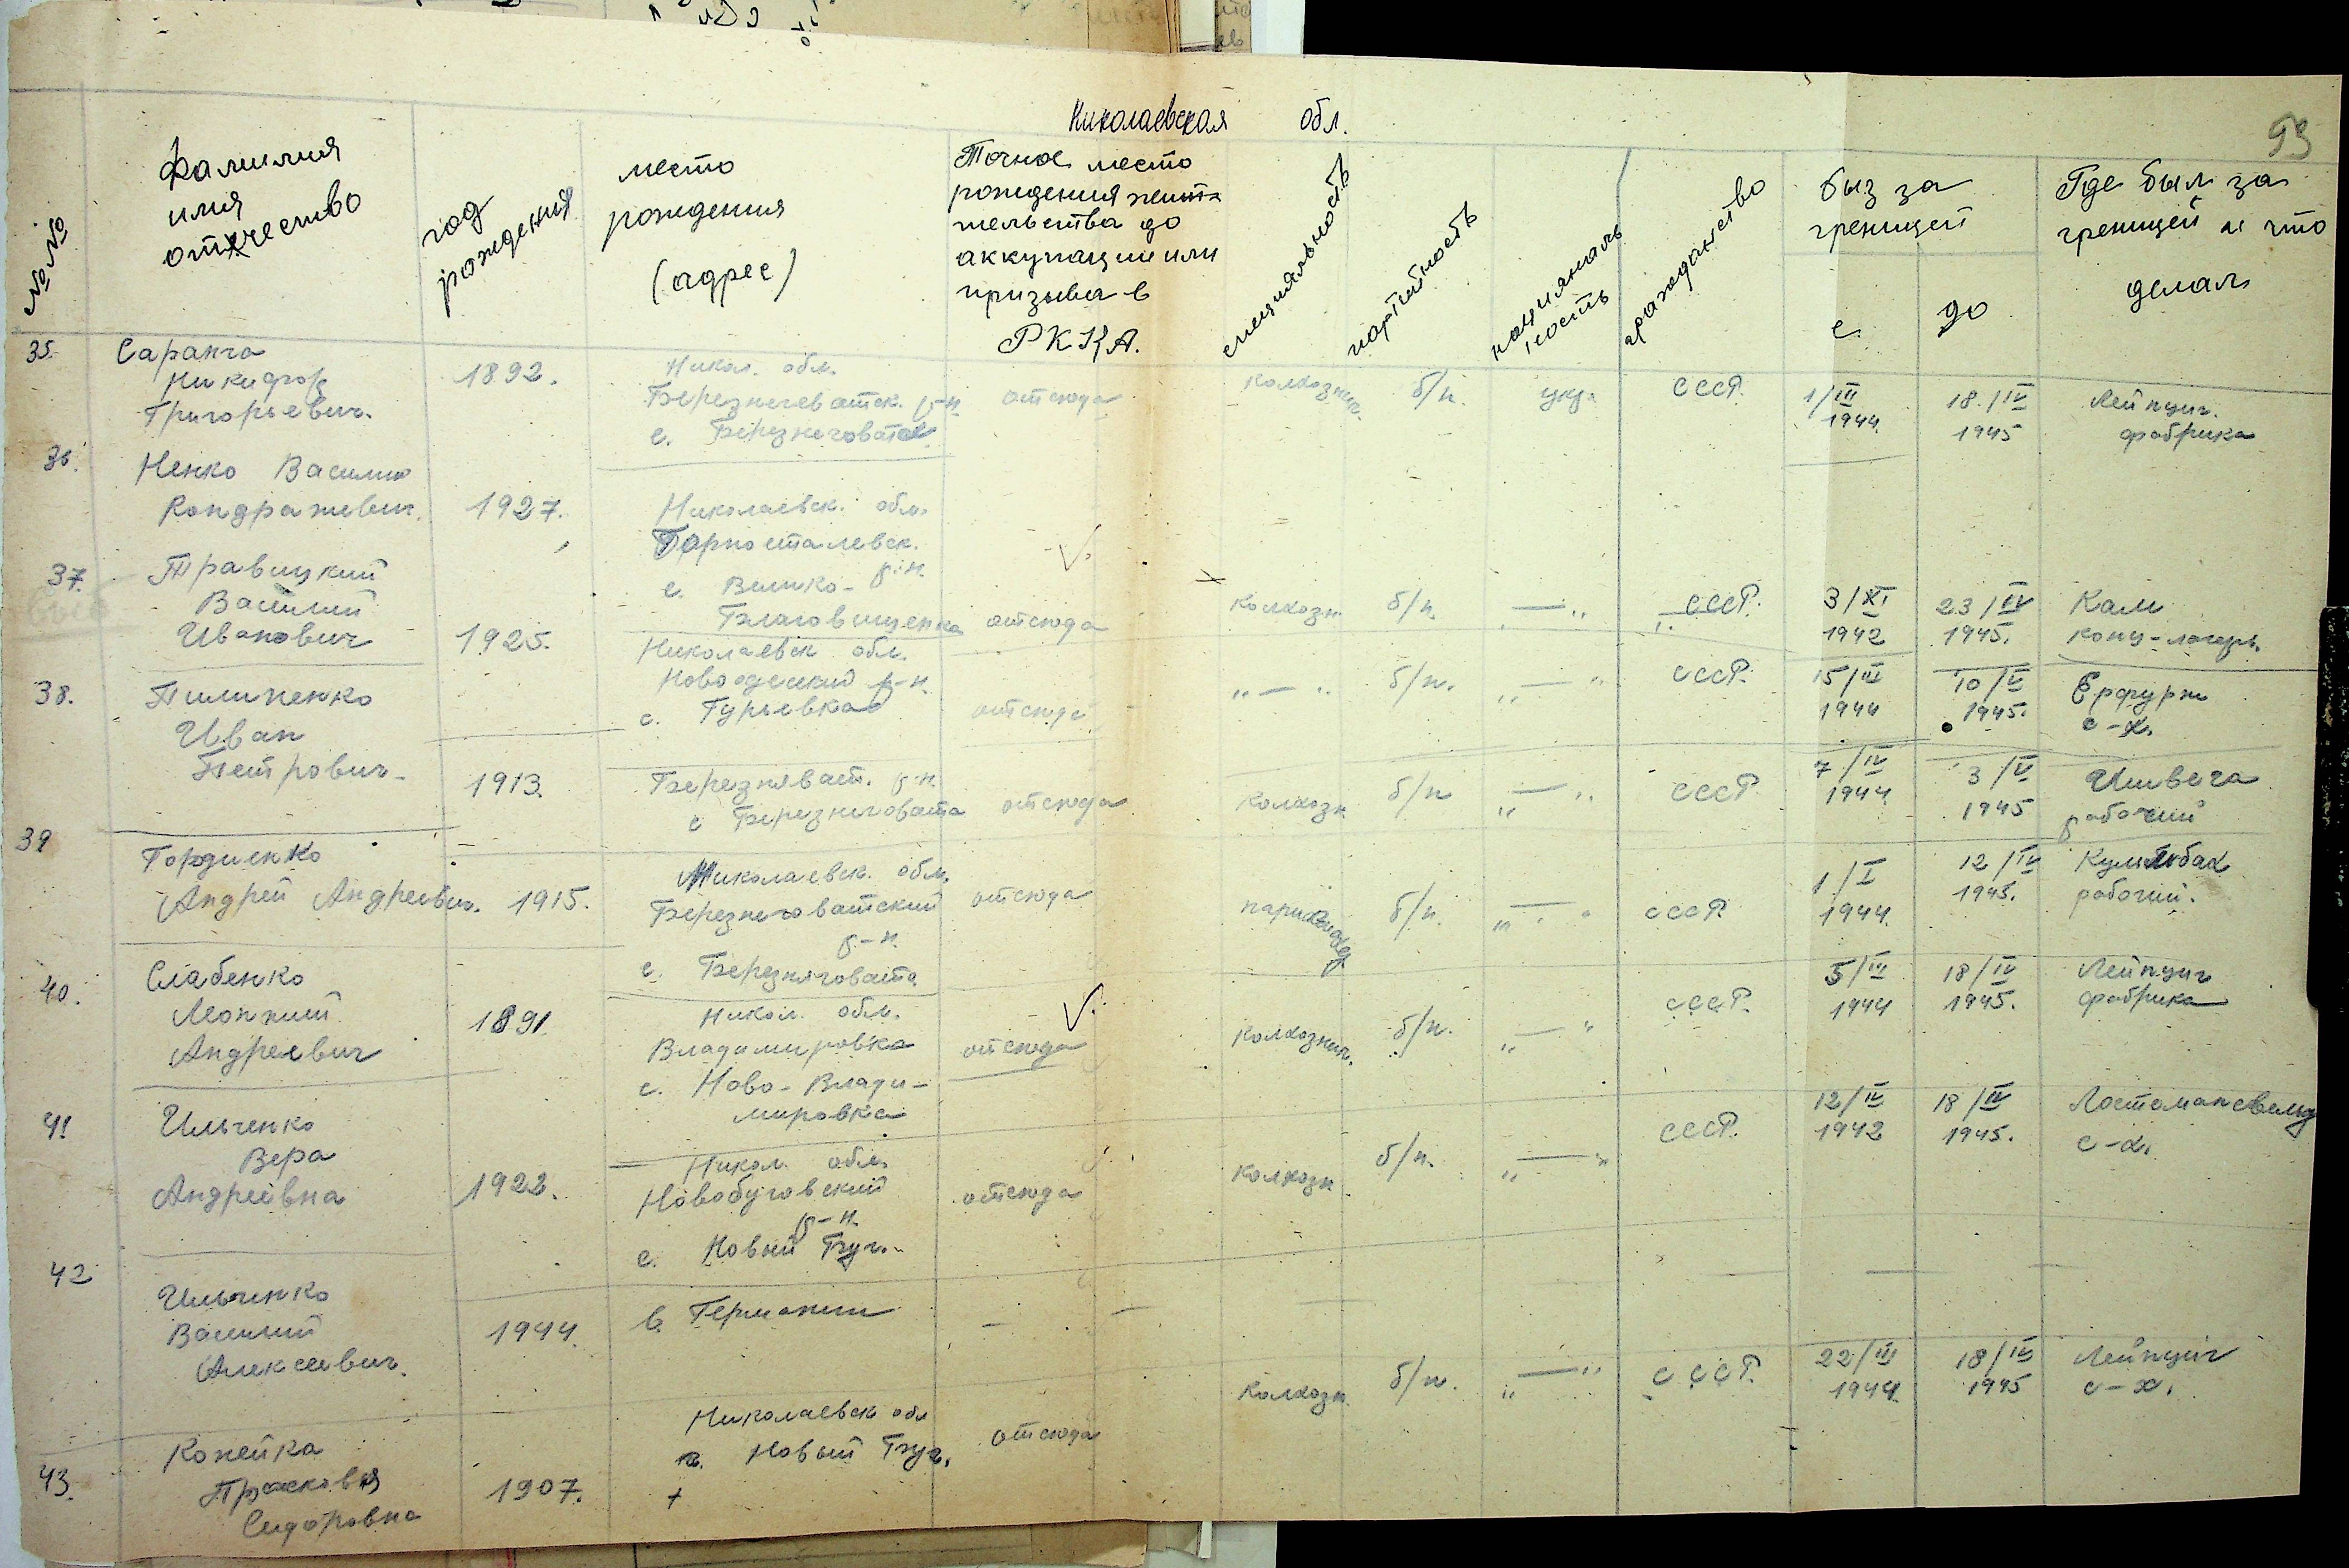 Николаевская обл.
93
№№
фамилия
имя
отчество
год
рождения
место
рождения
(адрес)
Точное место
рождения жит
тельства до
аккупации или
призыва в
РККА.
специальность
партийность
националь
ность
гражданство
быз за
греницей
с
до
Где был за
греницей и что
делал
35.
Саранча
Никифор
Григорьевич.
1892.
Никол. обл.
Березнегеватск. р-н.
с. Березнеговатое
отсюда
колхозник.
б/п.
укр.
СССР.
1/III
1944.
18./IV
1945
Лейпциг.
фабрика
36.
Ненко Василий
Кондративич.
1927.
Николаевск. обл.
Горносталевск.
р-н.
с. Велико-
Благовищенка
отсюда
колхозн.
б/п.
—„—
СССР.
3/XI
1942
23/IV
1945.
Кам
конц-лагерь.
37.
Травицкий
Василий
Иванович
1925.
Николаевск обл.
Новоодесский р-н.
с. Гурьевка
отсюда
„—„
б/п.
„—„
СССР.
15/III
1944
10/V
1945.
Ерфурт
с-х.
38.
Пилипенко
Иван
Петрович.
1913.
Березняват. р-н.
с Березнеговата
отсюда
колхозн.
б/п
„—„
СССР
7/IV
1944.
3/V
1945
рабочий
39
Гордиенко
Андрей Андреевич.
1915.
Николаевск. обл.
Березнеговатский
р-н.
с. Березняговата
отсюда
б/п.
„—„
СССР.
1/I
1944.
12/IV
1945.
рабочий.
40.
Слабенко
Леонтий
Андреевич
1891.
Никол. обл.
Владимировка
с. Ново-Влади-
мировка
отсюда
колхозник.
б/п.
„—„
СССР.
5/III
1944
18/IV
1945.
Лейпциг
фабрика
41
Ильченко
Вера
Андреевна
1922.
Никол. обл.
Новобуговский
р-н.
с. Новый Буг.
отсюда
колхозн
б/п.
„—„
СССР.
12/IV
1942
18/IV
1945.
с-х.
42
Ильченко
Василий
Алексеевич.
1944.
в Германии
—
43.
Копейка
Прасковья
Сидоровна
1907.
Николаевск обл
г. Новый Буг.
отсюда
колхозн.
б/п.
„—„
СССР.
22/III
1944.
18/IV
1945
Лейпциг
с-х.